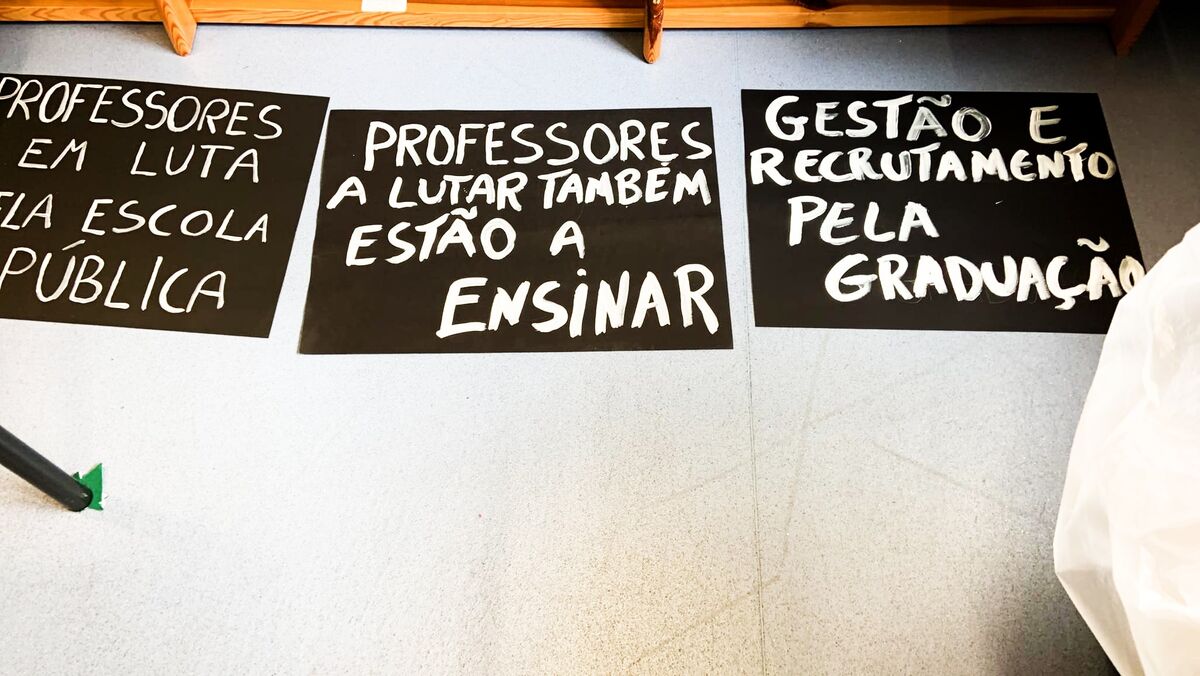 PROFESSORES
EM LUTA
ELA ESCOLA
PÚBLICA
PROFESSORES
A LUTAR TAMBÉM
ESTÃO A
ENSINAR
GESTÃO E
RECRUTAMENTO
PELA
GRADUAÇÃO